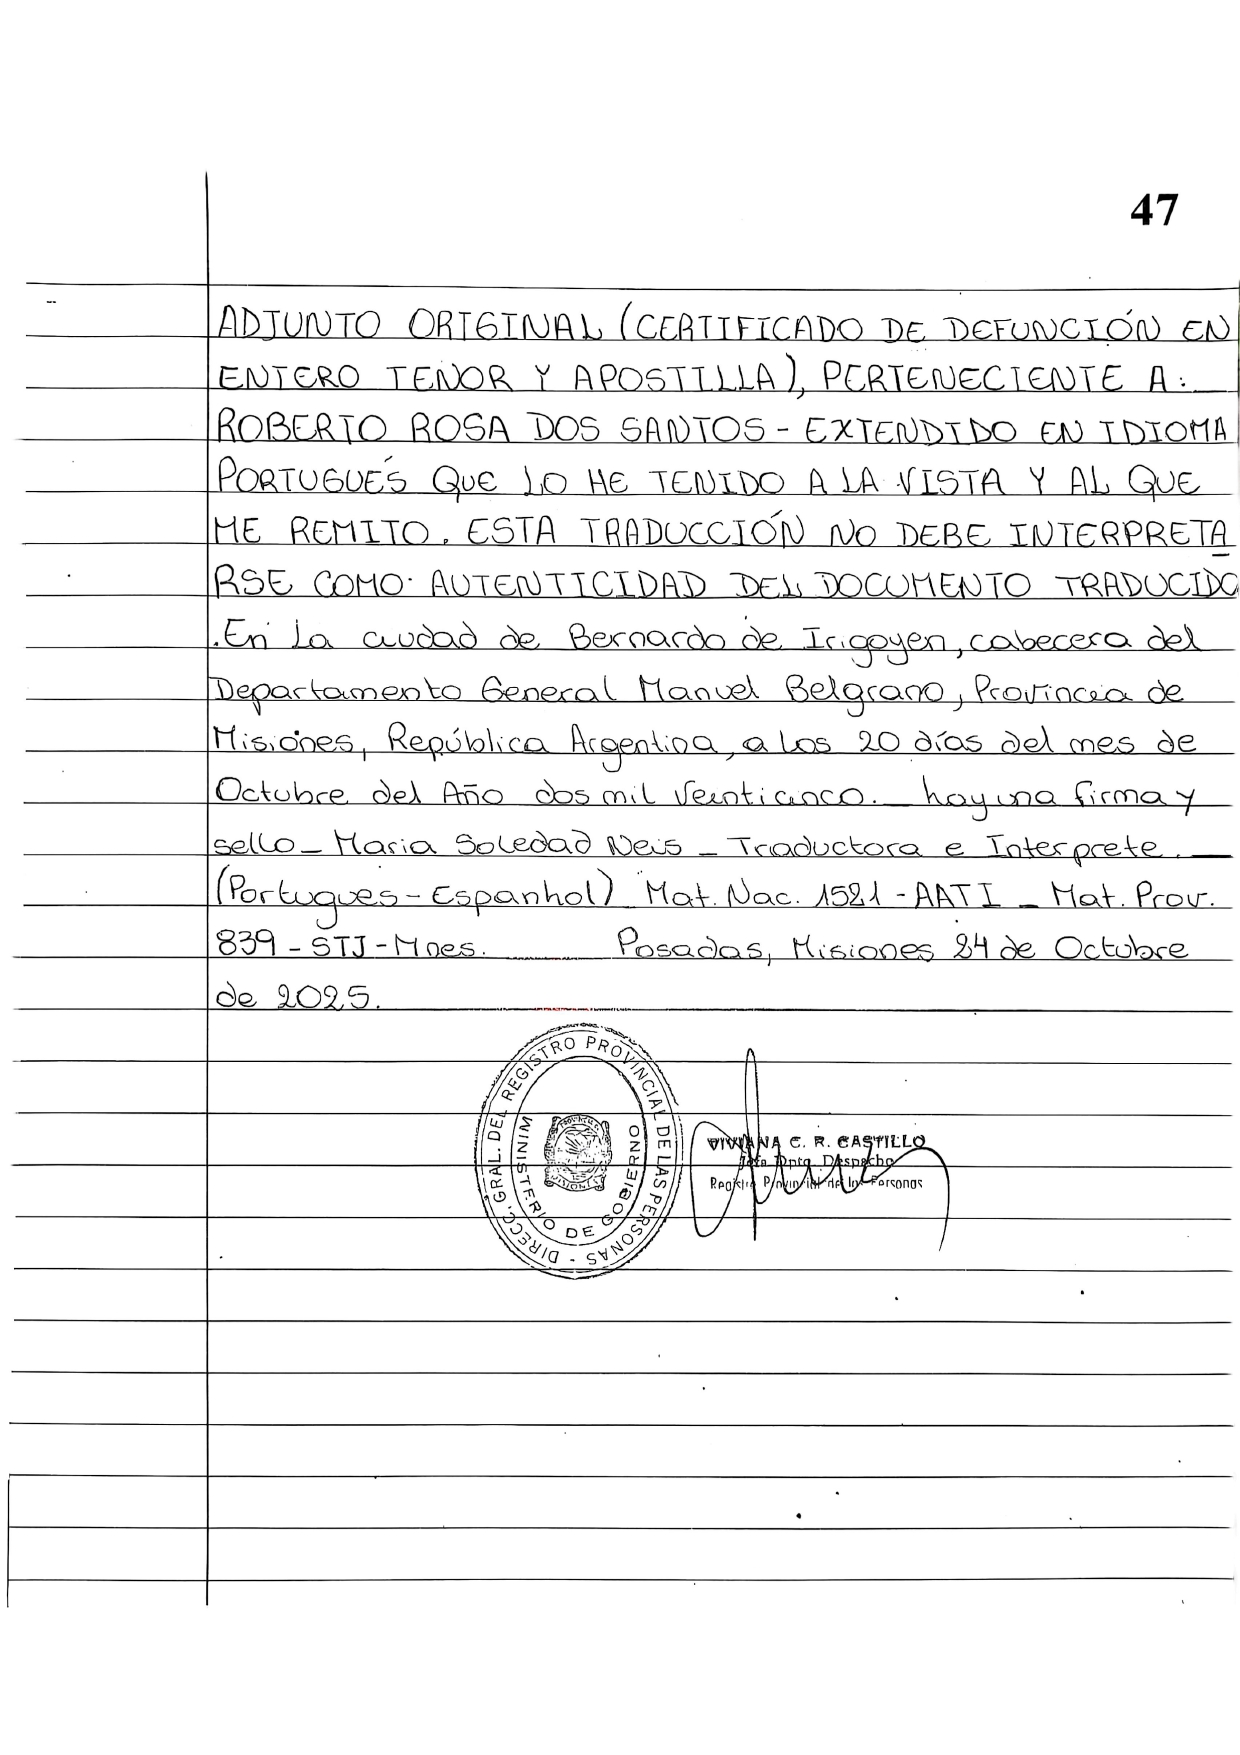 47
ADJUNTO ORIGINAL (CERTIFICADO DE DEFUNCIÓN EN
ENTERO TENOR Y APOSTILLA), PERTENECIENTE A:
ROBERTO ROSA DOS SANTOS - EXTENDIDO EN IDIOMA
PORTUGUÉS QUE LO HE TENIDO A LA VISTA Y AL QUE
ME REMITO. ESTA TRADUCCIÓN NO DEBE INTERPRETA
RSE COMO AUTENTICIDAD DEL DOCUMENTO TRADUCIDO
.En La ciudad de Bernardo de Irigoyen, cabecera del
Departamento General Manuel Belgrano, Provincia de
Misiones, República Argentina, a los 20 días del mes de
Octubre del Año dos mil Veinticinco. hay una firma y
sello - Maria Soledad Neis - Traductora e Interprete.
(Portugues - Espanhol) Mat. Nac. 1521 - AATI - Mat. Prov.
839 - STJ - Mnes. Posadas, Misiones 24 de Octubre
de 2025.
DIRECC. GRAL. DEL REGISTRO PROVINCIAL DE LAS PERSONAS -
MINISTERIO DE GOBIERNO
MISIONES
VIVIANA C. R. CASTILLO
Jefa Dpto. Despacho
Registro Provincial de las Personas